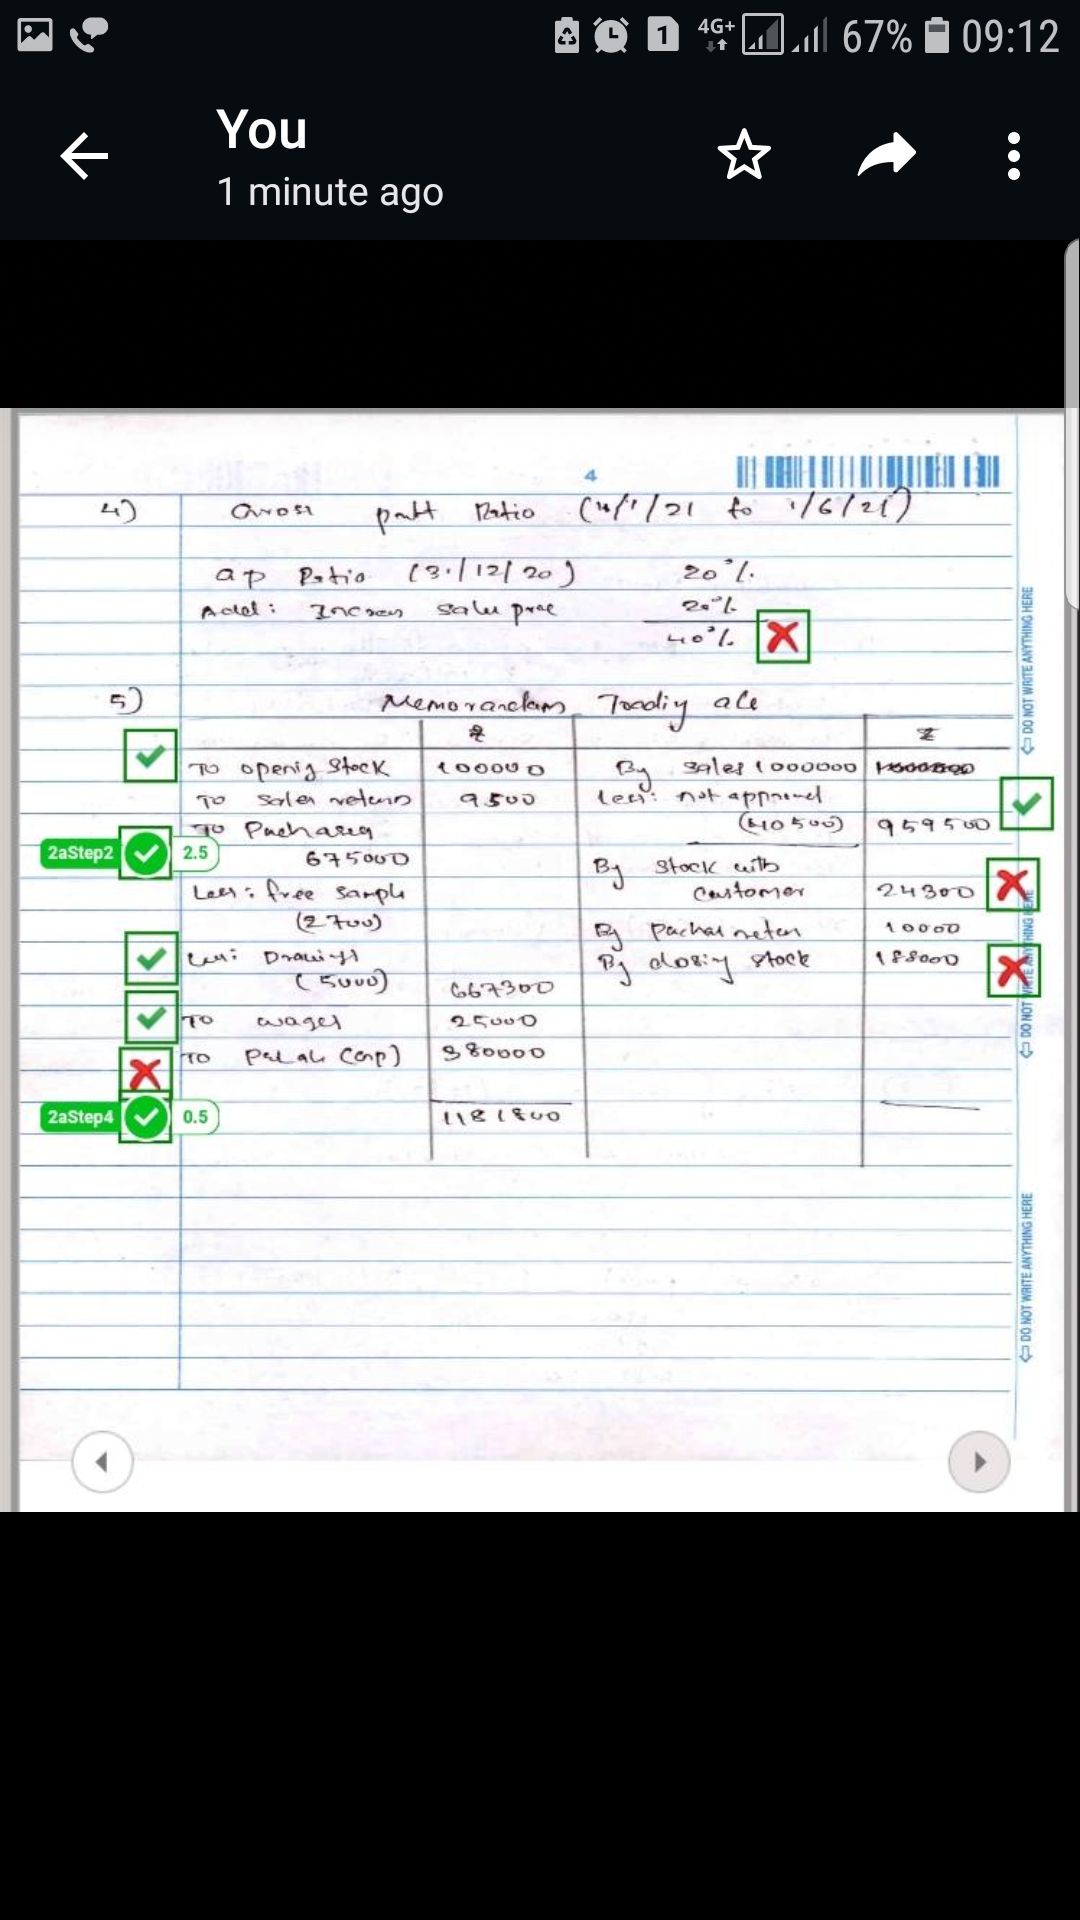 67% 09:12
You
1 minute ago
4
4) Ratio (
Ratio (31/12/20) 20%
Add: sale 20%
40%
5) Memorandum
₹ ₹
To opening Stock 100000 By sales 1000000
To sales return 9500 Less: not approved
(40500) 959500
To
2aStep2 2.5
675000
By Stock with
customer 24300
Less: free sample
(2700)
By 10000
Less: Drawings
(5000) 667300
By closing stock 188000
To wages 25000
To 380000
2aStep4 0.5
1181800
DO NOT WRITE ANYTHING HERE
DO NOT WRITE ANYTHING HERE
DO NOT WRITE ANYTHING HERE